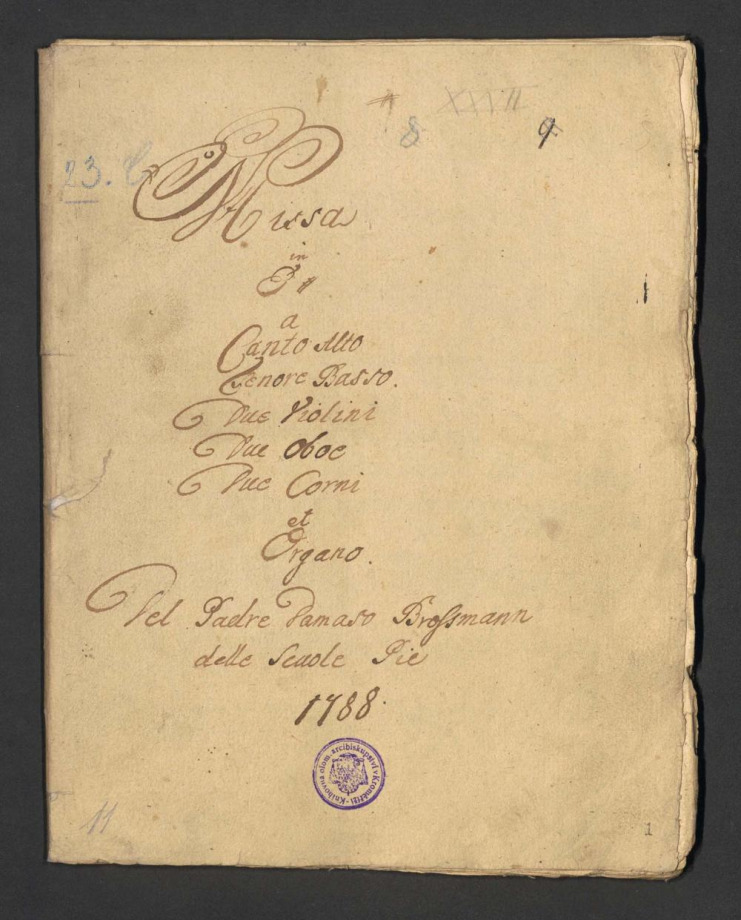 XIII
8 9
23.
Missa
in
a
Canto Alto
Tenore Basso.
Due Violini
Due Oboe
Due Corni
et
Organo.
Del Padre Damaso Broſsmann
delle Scuole Pie
1788.
Knihovna olom. arcibiskupství v Kroměříži
11
1